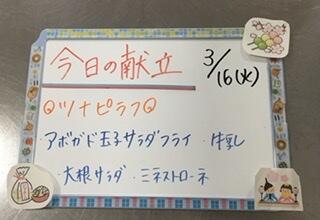 今日の献立
3/16(火)
◎ツナピラフ◎
アボガド玉子サラダフライ・牛乳
・大根サラダ・ミネストローネ